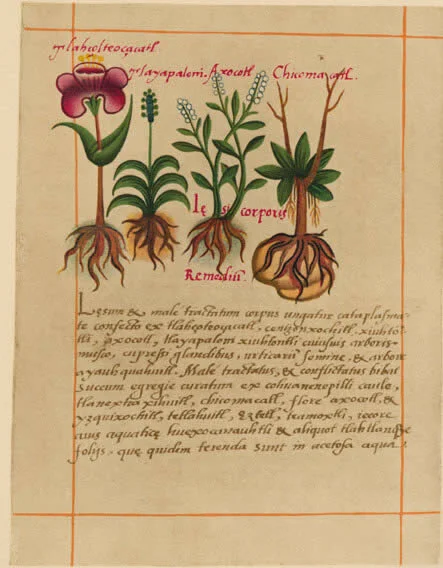 Tlahçolteoçacatl.
Tlayapaloni. Axocotl. Chicomacatl.
Lę si corporis
Remediū.
Lęsum & male tractatum corpus ungatur cataplasma-
te confecto ex tlahcolteoçacatl, centzonxochitl, xiuhto-
tli, axocotl, tlayapaloni xiuhtontli cuiusuis arboris
musco, cupressi glandibus, urticarū semine, & arbore
ayauhquahuitl. Male tractatus, & conflictatus bibat
succum egregie curatum ex cohuanenepilli caule,
tlanextia xihuitl, chicomacatl, flore axocotl, &
yzquixochitl, tetlahuitl, eztetl, teamoxtli, iecore
auis aquaticę huexocanauhtli & aliquot tlahtlanque
folijs, quę quidem terenda sunt in acetosa aqua.